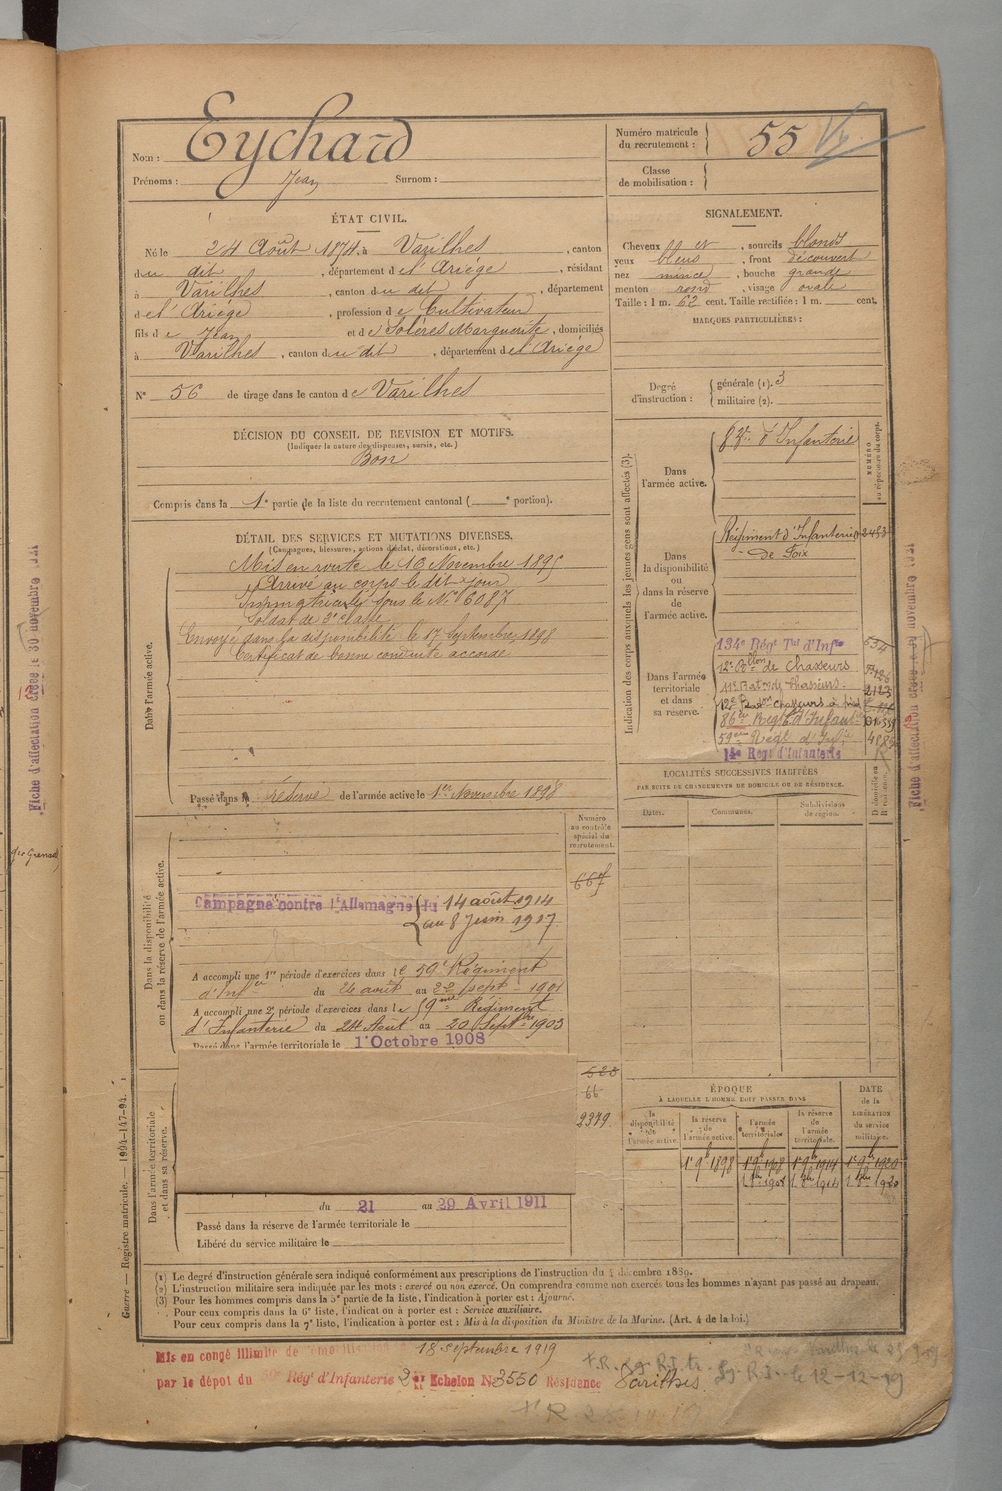 Nom : Eychard
Prénoms : Jean Surnom :
Numéro matricule du recrutement : 55
Classe de mobilisation :
ÉTAT CIVIL.
Né le 24 Août 1874, à Varilhes, canton
du dit, département de l'Ariége, résidant
à Varilhes, canton du dit, département
de l'Ariége, profession de Cultivateur
fils de Jean et de Solères Marguerite, domiciliés
à Varilhes, canton du dit, département de l'Ariége
N° 56 de tirage dans le canton de Varilhes
DÉCISION DU CONSEIL DE REVISION ET MOTIFS.
(Indiquer la nature des dispenses, sursis, etc.)
Bon
Compris dans la 1e partie de la liste du recrutement cantonal ( e portion).
SIGNALEMENT.
Cheveux et, sourcils blonds
yeux bleus, front découvert
nez mince, bouche grande
menton rond, visage ovale
Taille : 1 m. 62 cent. Taille rectifiée : 1 m. cent.
MARQUES PARTICULIÈRES :
Degré d'instruction : générale (1). 3
militaire (2).
DÉTAIL DES SERVICES ET MUTATIONS DIVERSES.
(Campagnes, blessures, actions d'éclat, décorations, etc.)
Dans l'armée active.
Mis en route le 16 Novembre 1895
Arrivé au corps le dit jour
Immatriculé sous le N° 6087
Soldat de 2e classe
Envoyé dans la disponibilité le 17 Septembre 1898
Certificat de bonne conduite accordé
Passé dans la réserve de l'armée active le 1er Novembre 1898
Indication des corps auxquels les jeunes gens sont affectés (3).
NUMÉRO au répertoire du corps.
Dans l'armée active.
d'Infanterie
Dans la disponibilité ou dans la réserve de l'armée active.
Régiment d'Infanterie 2483
de Foix
Dans l'armée territoriale et dans sa réserve.
134e Régt Tal d'Infie
12e Bllon de Chasseurs
11e Baton de Chasseurs
12e Baton Chasseurs à pied
86e Régt d'Infant
59eme Régt d'Infie
14e Régt d'Infanterie
LOCALITÉS SUCCESSIVES HABITÉES
PAR SUITE DE CHANGEMENTS DE DOMICILE OU DE RÉSIDENCE.
Dates. Communes. Subdivisions de région. D. domicile ou R. résidence.
Dans la disponibilité ou dans la réserve de l'armée active.
Numéro au contrôle spécial du recrutement.
667
Campagne contre l'Allemagne du 14 août 1914
au 8 Juin 1917
A accompli une 1re période d'exercices dans le 59e Régiment
d'Infie du 26 août au 22 sept 1901
A accompli une 2e période d'exercices dans le 59me Régiment
d'Infanterie du 24 Août au 20 Septbre 1903
Passé dans l'armée territoriale le 1er Octobre 1908
Dans l'armée territoriale et dans sa réserve.
66
2379
du 21 au 29 Avril 1911
Passé dans la réserve de l'armée territoriale le
Libéré du service militaire le
ÉPOQUE
À LAQUELLE L'HOMME DOIT PASSER DANS
la disponibilité de l'armée active. la réserve de l'armée active. l'armée territoriale. la réserve de l'armée territoriale.
DATE de la LIBÉRATION du service militaire.
1er 9b 1898 1er 9b 1908 1er 9b 1914 1er 9b 1920
(1) Le degré d'instruction générale sera indiqué conformément aux prescriptions de l'instruction du 4 décembre 1889.
(2) L'instruction militaire sera indiquée par les mots : exercé ou non exercé. On comprendra comme non exercés tous les hommes n'ayant pas passé au drapeau.
(3) Pour les hommes compris dans la 5e partie de la liste, l'indication à porter est : Ajourné.
Pour ceux compris dans la 6e liste, l'indication à porter est : Service auxiliaire.
Pour ceux compris dans la 7e liste, l'indication à porter est : Mis à la disposition du Ministre de la Marine. (Art. 4 de la loi.)
Mis en congé illimité de démobilisation 18 septembre 1919
par le dépot du 59e Régt d'Infanterie 2e Echelon N° 3550 Résidence Varilhes
le 12-12-19
Guerre — Registre matricule. — 1994-147-94.
Fiche d'affectation créée le 30 novembre 1921
Fiche d'affectation créée le 30 novembre 1921